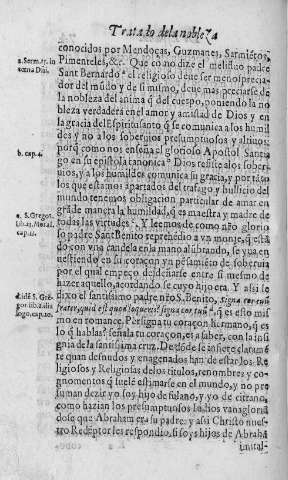 Tratado de la nobleza
conocidos por Mendoças, Guzmanes, Sarmiẽtos,
a. Serm. 15. in
Pimenteles, &c. Que como dize el melifluo padre
cœna Dñi.
Sant Bernardo ᵃ el religioso deue ser menospreciador
del mũdo y de si mismo, deue mas preciarse de
la nobleza del anima q̃ del cuerpo, poniendo la nobleza
verdadera en el amor y amistad de Dios y en
la gracia del Espiritu sancto q̃ se comunica a los humildes
y no a los soberuios presumptuosos y altiuos:
b. cap. 4.
porq̃ como nos enseña el glorioso Apostol Santiago
en su epistola canonica ᵇ Dios resiste a los soberuios,
y a los humildes comunica su gracia, y por tãto
los que estamos apartados del trafago y bullicio del
mundo tenemos obligacion particular de amar en
grãde manera la humildad, q̃ es maestra y madre de
c. S. Gregor.
todas las virtudes ᶜ. Y leemos de como nr̃o glorioso
lib. 23. Moral.
padre Sant Benito reprehẽdio a vn monje, q̃ estãdo
cap. 13.
con vna candela en la mano alũbrando, se yua en
uestiendo en su coraçon vn pẽsamiẽto de soberuia
por el qual empeço desdeñarse entre si mesmo de
hazer aquello, acordando se cuyo hijo era. Y assi le
d. Idẽ S. Gregor.
dixo el santissimo padre nr̃o S. Benito, signa cor tuũ
lib. 2. dialogo.
frater, quid est quod loqueris? signa cor tuũ ᵈ, q̃ es esto mismo
cap. 20.
en romance. Persigna tu coraçon hermano, q̃ es
lo q̃ hablas? señala tu coraçon, es a saber, con la insignia
de la santissima cruz. De dõde se infiere claramẽte
quan desnudos y enagenados han de estar los Religiosos
y Religiosas de los titulos, renombres y cognomentos
q̃ suelẽ estimarse en el mundo, y no presuman
dezir yo soy hijo de fulano, y yo de citrano,
como hazian los presumptuosos Iudios vanagloriãdose
que Abraham era su padre: y assi Christo nuestro
Redẽptor les respondio, si soys hijos de Abrahã
imital-